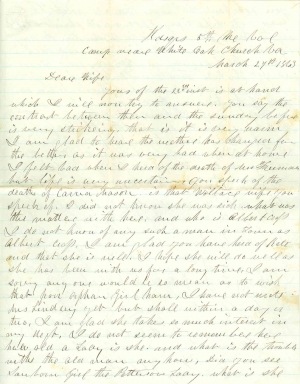 5th Me Vol
Camp near White Oak Church Va
March 27th 1863
Dear Wife
Yours of the 22 inst is at hand
which I will now try to answer. You say the
contrast between then and the sunday before
is very striking that is it is very warm
I am glad to hear the weather has changed for
the better as it was very bad when at home
I felt bad when I heard of the death of
but life is very uncertain you speak of the
death of Mason is that wife you
speak of. I did not know she was sick what was
the matter with her. and who is Albert
I do not know of any such a man in town as
Albert. I am glad you have heard of
and that she is well. I hope she will do well as
she has been with us for a long time. I am
sorry any one would be so mean as to wish
that poor orphan girl harm, I have not made
yet but shall within a day or
two, I am glad she takes so much interest in
my I do not seem to remember her
how old a Lady is she. and what is the trouble
with the old man any how, did you see
girl the Patterson Lady. what is she